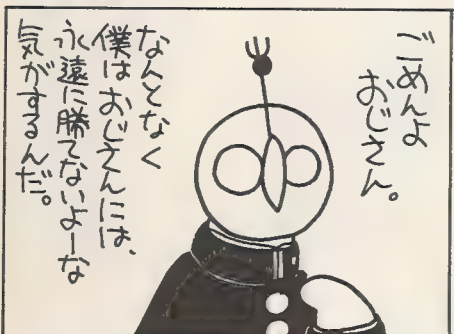 ごめんよ
おじさん。
なんとなく
僕はおじさんには、
永遠に勝てないよーな
気がするんだ。